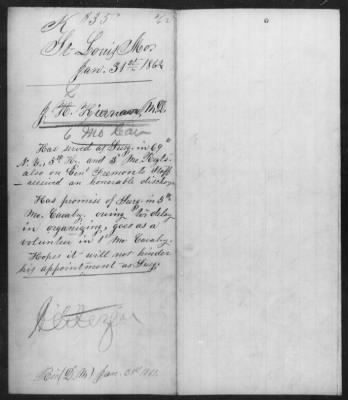 K 835
St. Louis Mo.
Jan. 31st 1862
J. H. Kiernan, M.D.
6 Mo Cav
Has served as Surg. in 69
N.Y., 5th Ky. and 3d Mo. Regts.
also on Gen'l Fremont's Staff
- received an honorable discharge
Has promise of Surg. in 5th
Mo. Cavalry. owing to delay
in organizing, goes as a
volunteer in 1st Mo. Cavalry.
Hopes it will not hinder
his appointment as Surg.
Jan. 31st 1862